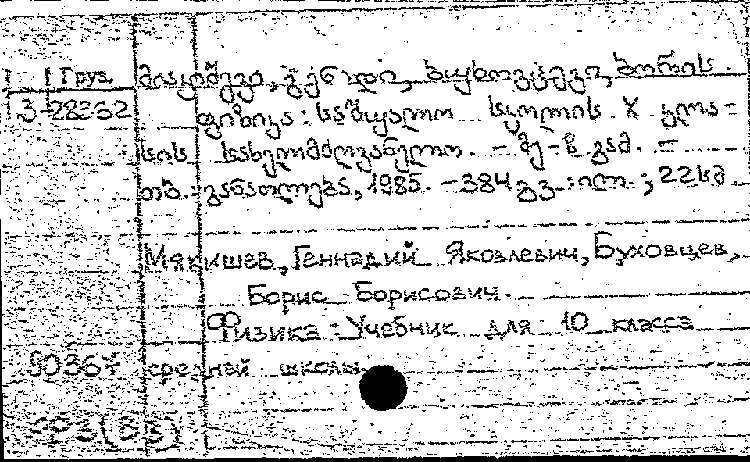 Груз. მიაკიშევი, გენადი, ბუხოვცევი, ბორის.
3-28262 ფიზიკა : საშუალო სკოლის X კლა-
სის სახელმძღვანელო. – მე-8 გამ. –
თბ. : განათლება, 1985. – 384 გვ. : ილ. ; 22 სმ
Мякишев, Геннадий Яковлевич, Буховцев,
Борис Борисович.
Физика : Учебник для 10 класса
90367 средней школы